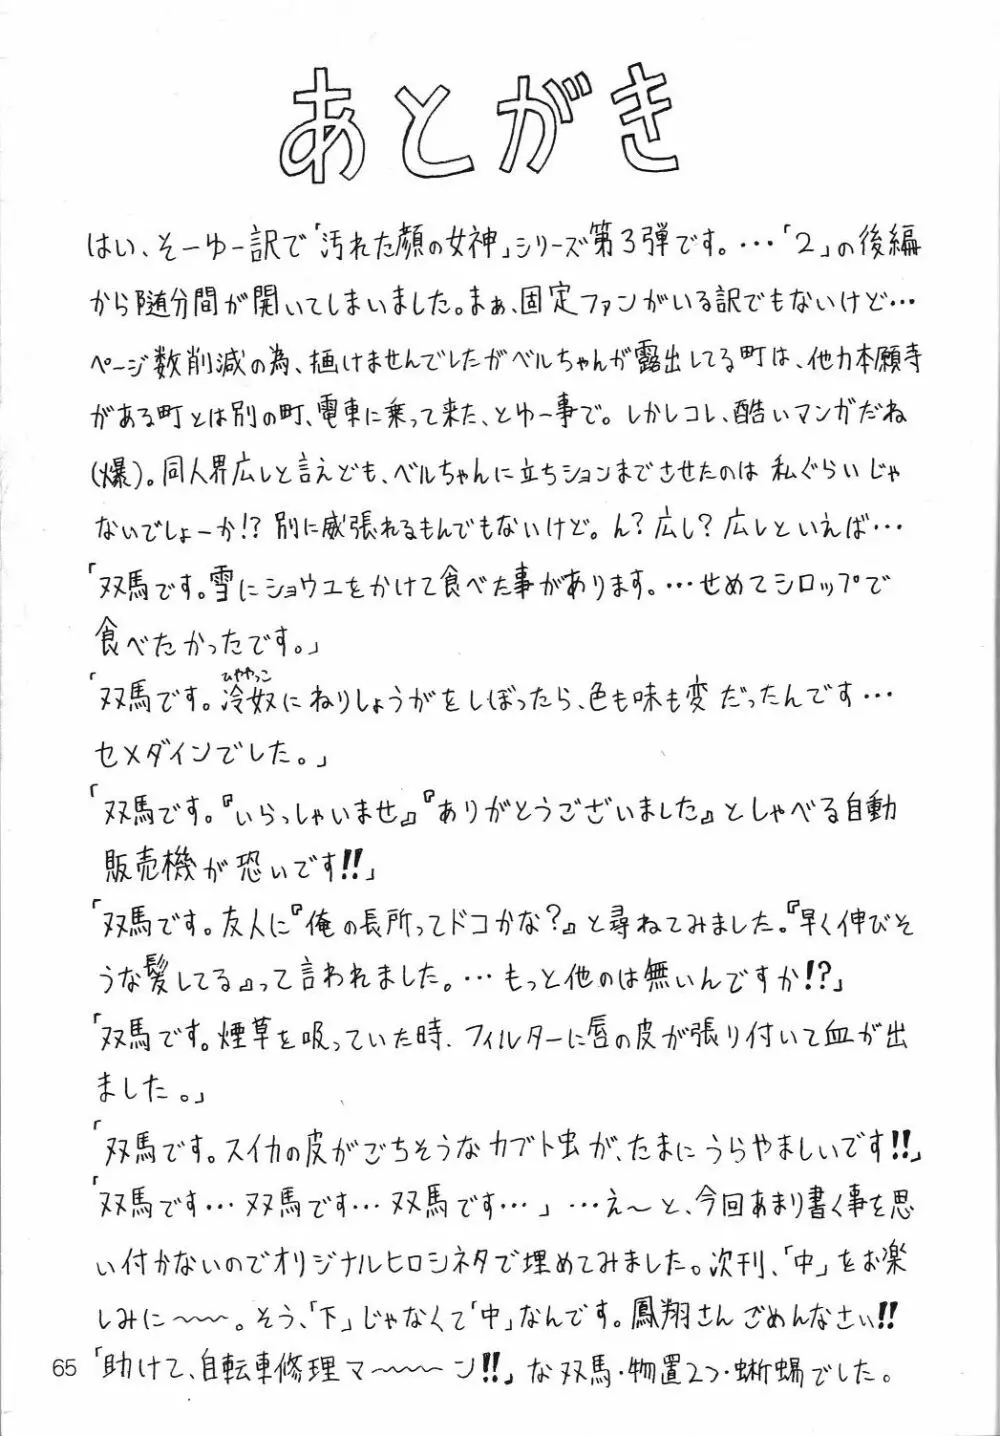 あとがき
はい、そーゆー訳で「汚れた顔の女神」シリーズ第3弾です。・・・「2」の後編
から随分間が開いてしまいました。まぁ、固定ファンがいる訳でもないけど・・・
ページ数削減の為、描けませんでしたがベルちゃんが露出してる町は、他力本願寺
がある町とは別の町、電車に乗って来た、とゆー事で。しかしコレ、酷いマンガだね
(爆)。同人界広しと言えども、ベルちゃんに立ちションまでさせたのは私ぐらいじゃ
ないでしょーか!?別に威張れるもんでもないけど。ん?広し?広しといえば・・・
「双馬です。雪にショウユをかけて食べた事があります。・・・せめてシロップで
食べたかったです。」
ひややっこ
「双馬です。冷奴にねりしょうがをしぼったら、色も味も変だったんです・・・
セメダインでした。」
「双馬です。『いらっしゃいませ』『ありがとうございました』としゃべる自動
販売機が恐いです!!」
「双馬です。友人に『俺の長所ってドコかな?』と尋ねてみました。『早く伸びそ
うな髪してる』って言われました。・・・もっと他のは無いんですか!?」
「双馬です。煙草を吸っていた時、フィルターに唇の皮が張り付いて血が出
ました。」
「双馬です。スイカの皮がごちそうなカブト虫が、たまにうらやましいです!!」
「双馬です・・・双馬です・・・双馬です・・・」・・・え〜と、今回あまり書く事を思
い付かないのでオリジナルヒロシネタで埋めてみました。次刊、「中」をお楽
しみに〜〜〜。そう、「下」じゃなくて「中」なんです。鳳翔さんごめんなさい!!
65「助けて、自転車修理マ〜〜〜〜ン!!」な双馬・物置2つ・蜥蜴でした。